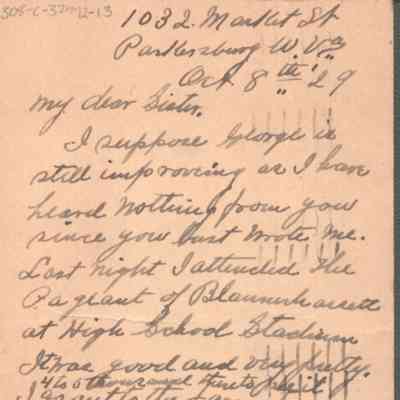 308-C-3
1032 Market St
Parkersburg W. Va
Oct 8th "29
My dear Sister.
I suppose George is
still improving as I have
heard nothing from you
since you last wrote me.
Last night I attended the
Pageant of Blannerhassett
at High School Stadium
It was good and very pretty.
4 to 6 thousand
I